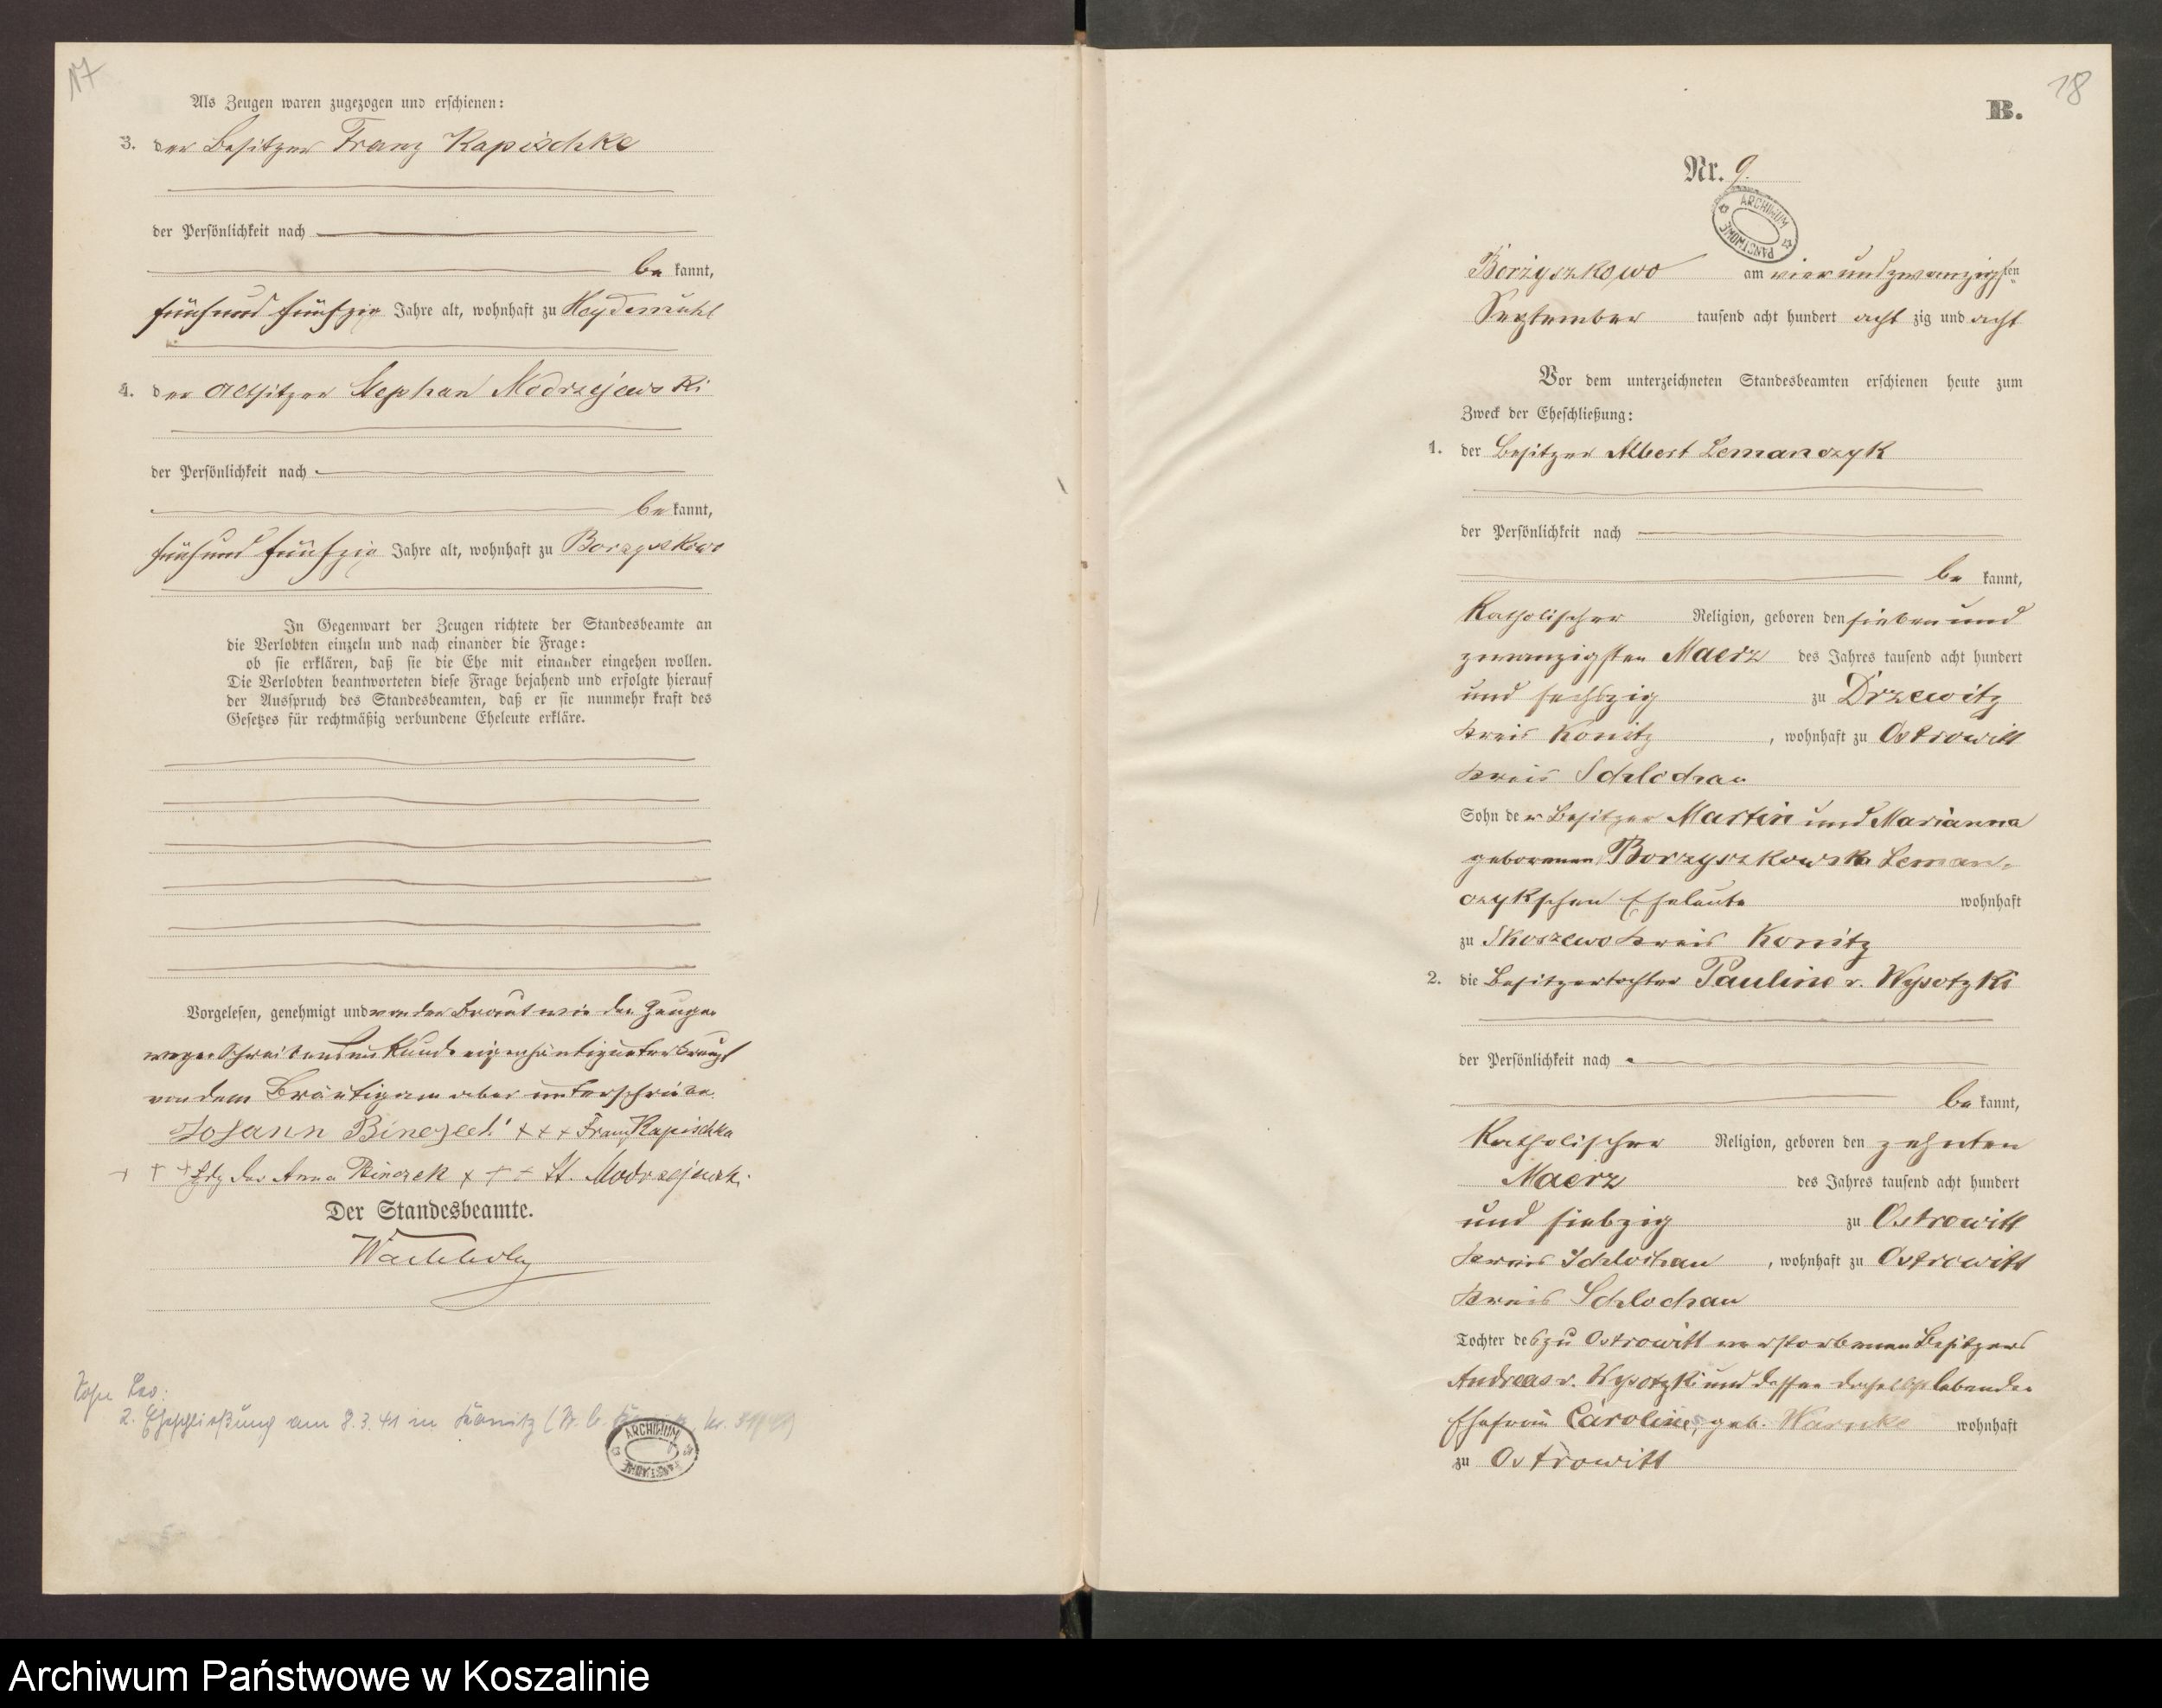 17
Als Zeugen waren zugezogen und erschienen:
3. der Besitzer Franz Kapischke
der Persönlichkeit nach
be kannt,
fünfund fünfzig Jahre alt, wohnhaft zu Heydemühl
4. der Altsitzer Stephan Modrzejewski
der Persönlichkeit nach
be kannt,
fünfund fünfzig Jahre alt, wohnhaft zu Borzyskowo
In Gegenwart der Zeugen richtete der Standesbeamte an
die Verlobten einzeln und nach einander die Frage:
ob sie erklären, daß sie die Ehe mit einander eingehen wollen.
Die Verlobten beantworteten diese Frage bejahend und erfolgte hierauf
der Ausspruch des Standesbeamten, daß er sie nunmehr kraft des
Gesetzes für rechtmäßig verbundene Eheleute erkläre.
Vorgelesen, genehmigt und von der Braut wie den Zeugen
wegen Schreibensunkunde eigenhändig unterkreuzt
von dem Bräutigam aber unterschrieben.
Johann Binczek +++ Franz Kapischka
+ + + Hdz. der Anna Binczek + + + St. Modrzejewski
Der Standesbeamte.
Wachholz
2. Eheschließung am 8.3.41 in Konitz
ARCHIWUM PAŃSTWOWE
18
B.
Nr. 9.
ARCHIWUM PAŃSTWOWE
Borzyszkowo am vierundzwanzigsten
September tausend acht hundert acht zig und acht
Vor dem unterzeichneten Standesbeamten erschienen heute zum
Zweck der Eheschließung:
1. der Besitzer Albert Lemanczyk
der Persönlichkeit nach
be kannt,
Katholischer Religion, geboren den siebenund
zwanzigsten Maerz des Jahres tausend acht hundert
und sechszig zu Drzewitz
Kreis Konitz, wohnhaft zu Ostrowitt
Kreis Schlochau
Sohn der Besitzer Martin und Marianna
geborenen Borzyszkowska Leman-
czykschen Eheleute wohnhaft
zu Skoszewo Kreis Konitz
2. die Besitzertochter Pauline v. Wysotzki
der Persönlichkeit nach
be kannt,
Katholischer Religion, geboren den zehnten
Maerz des Jahres tausend acht hundert
und siebzig zu Ostrowitt
Kreis Schlochau, wohnhaft zu Ostrowitt
Kreis Schlochau
Tochter des zu Ostrowitt verstorbenen Besitzers
Andreas v. Wysotzki und dessen daselbst lebenden
Ehefrau Caroline, geb. Warnke wohnhaft
zu Ostrowitt
Archiwum Państwowe w Koszalinie